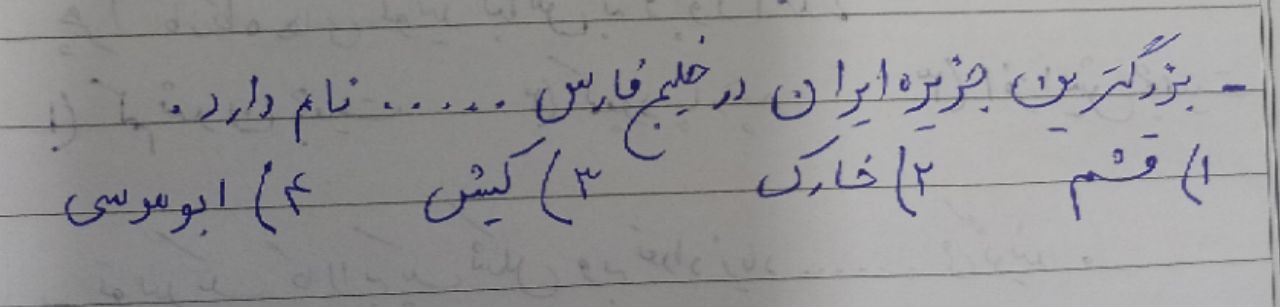 - بزرگترین جزیره ایران در خلیج فارس ..... نام دارد.
۱) قشم ۲) خارک ۳) کیش ۴) ابوموسی